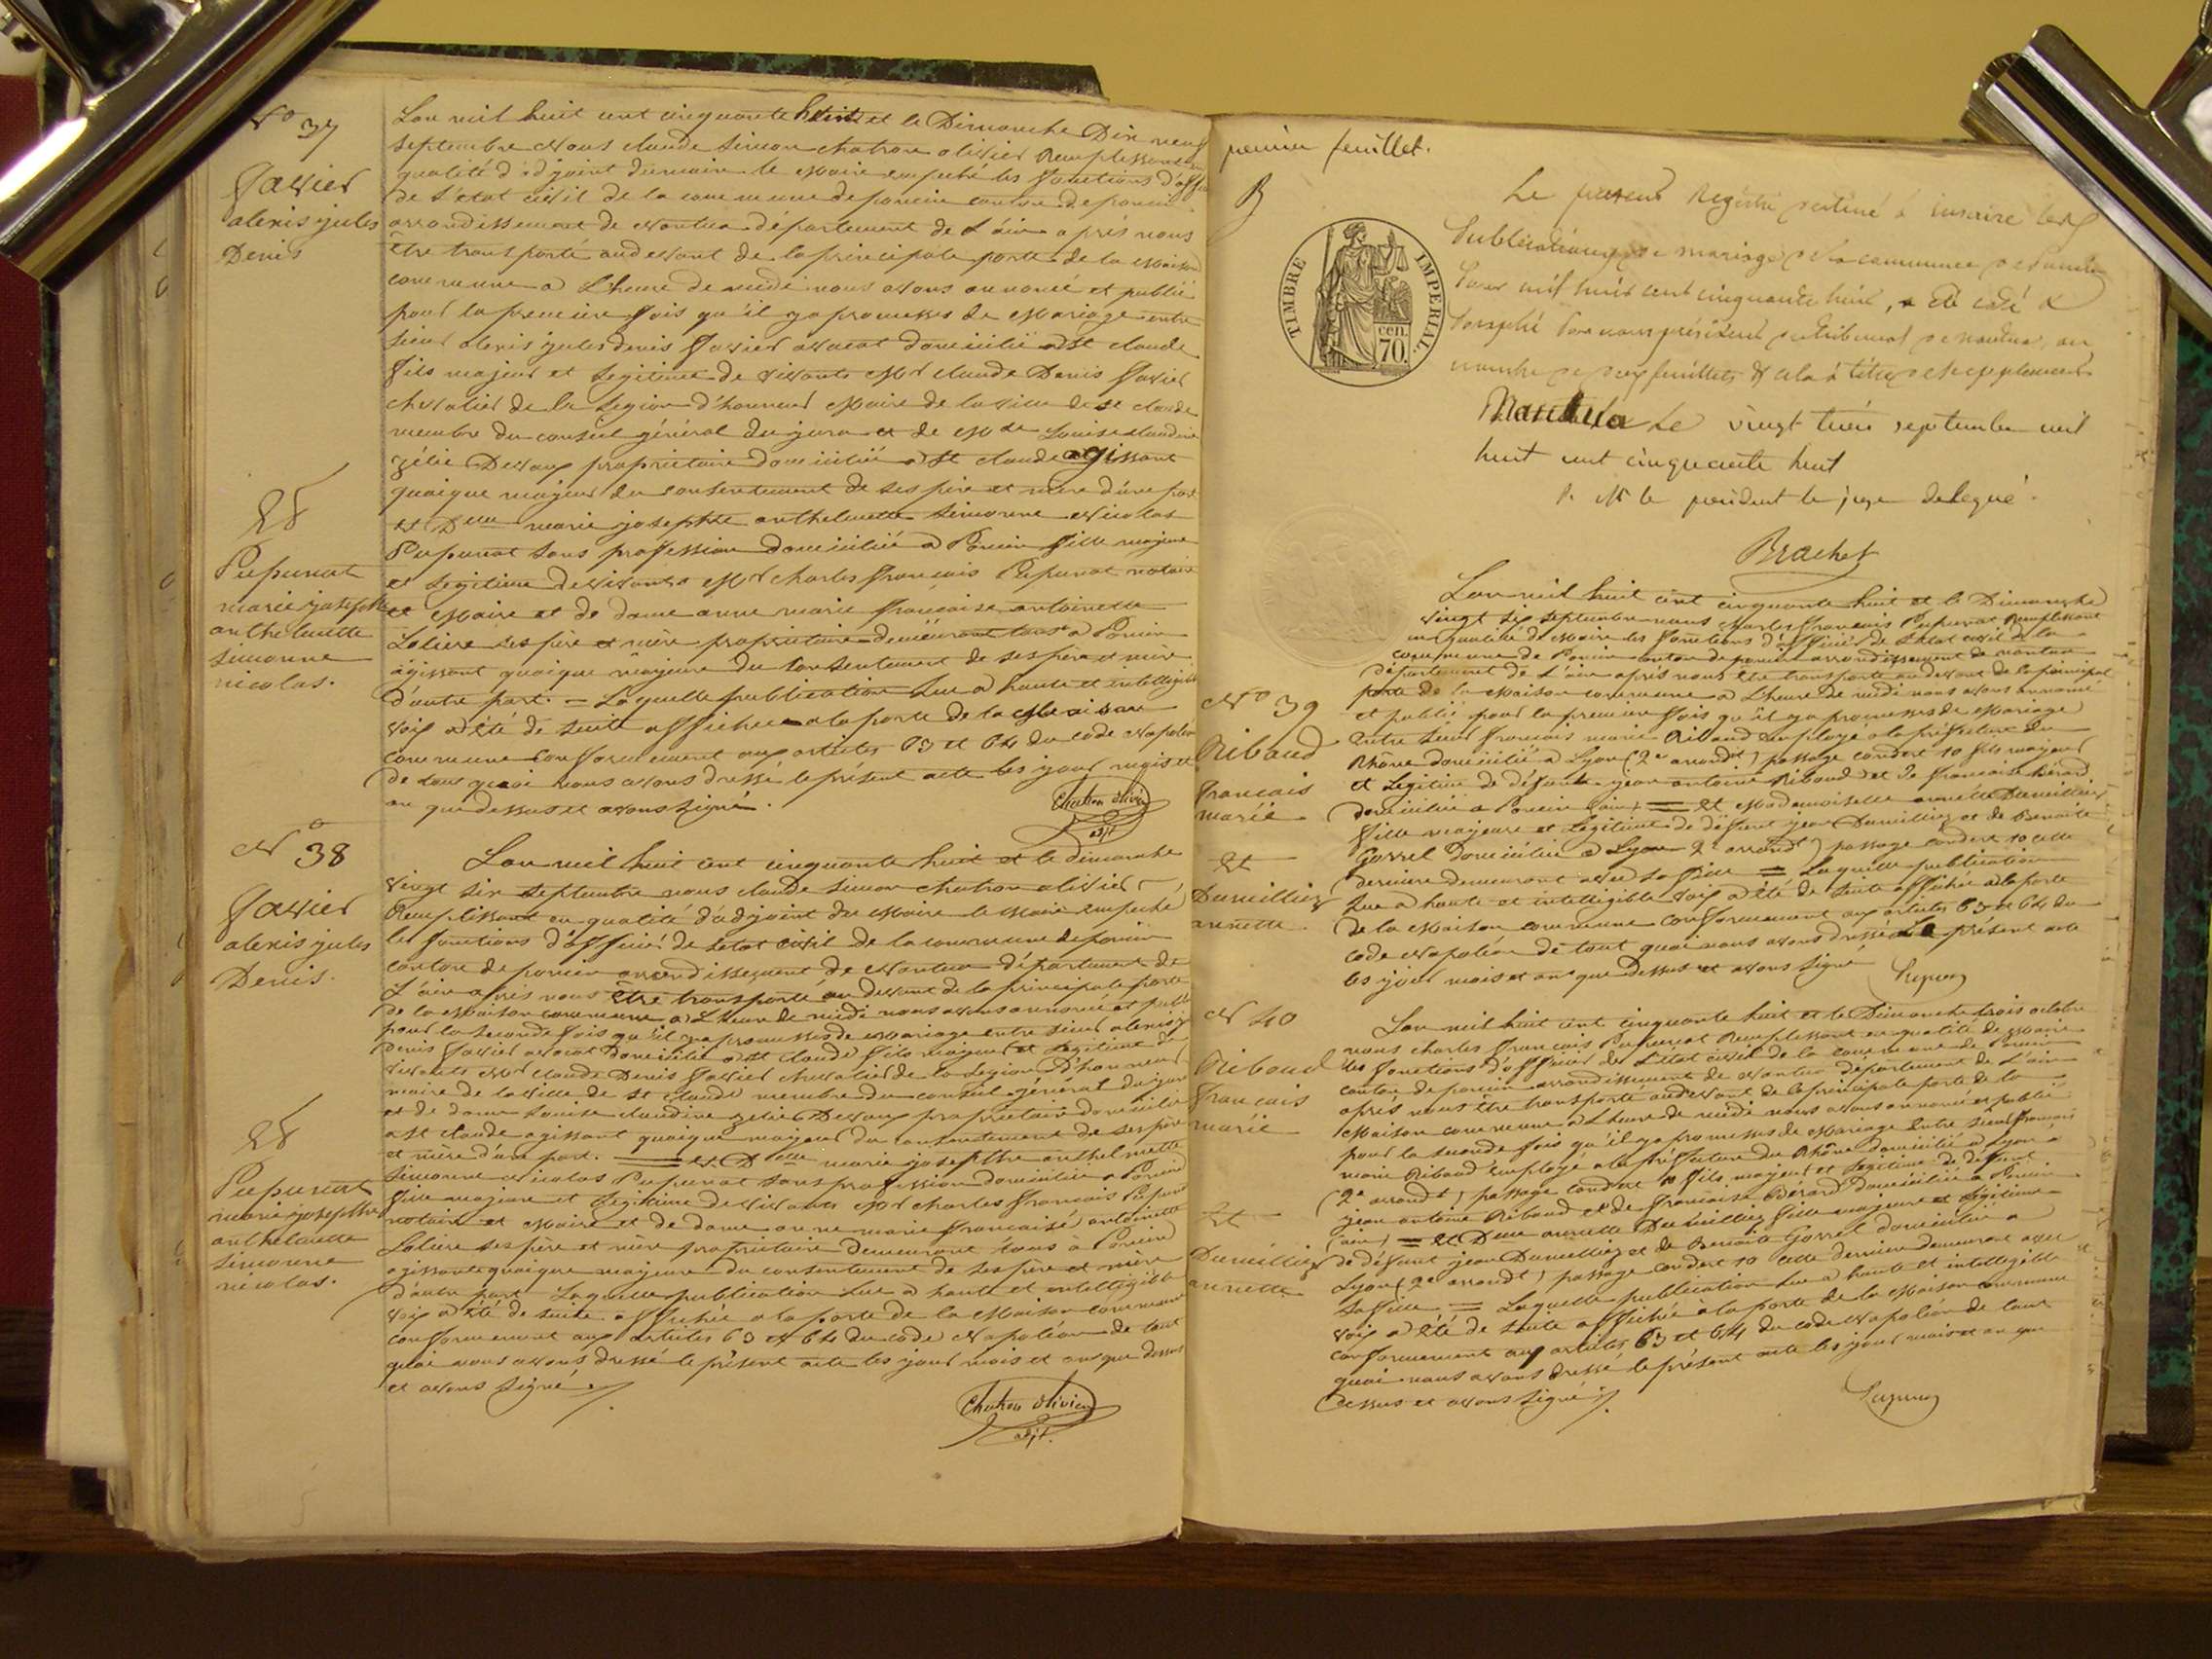 N° 37
Favier
alexis jules
Denis
Et
Pupunat
marie josephte
anthelmette
simonne
nicolas.
L'an mil huit cent cinquante huit et le Dimanche Dix neuf
septembre Nous claude simon chatron olivier Remplissant en
qualité d'adjoint du maire le Maire empeché les fonctions d'offic
de l'état civil de la commune de poncin canton de poncin
arrondissement de Nantua département de L'ain après nous
être transporté au devant de la principale porte de la Maison
commune a L'heure de midi nous avons annoncé et publié
pour la première fois qu'il y a promesses de Mariage entre
sieur alexis jules denis Favier avocat domicilié a St claude
fils majeur et Legitime de vivants Mr claude Denis Favier
chevalier de la Legion d'honneur Maire de la ville de St claude
membre du conseil général du jura et de Mde Louise claudine
zélie Devaux propriétaire domiciliés a St claude agissant
quoique majeur du consentement de ses père et mère d'une part
et Delle marie josephte anthelmette simonne Nicolas
Pupunat sans profession domiciliée a Poncin fille majeure
et Legitime de vivants Mr charles françois Pupunat notaire
et Maire et de dame anne marie françoise antoinette
Loliere ses père et mère propriétaire demeurant tous a Poncin
agissant quoique majeure du consentement de ses père et mère
d'autre part. = Laquelle publication Lue a haute et intelligible
voix a été de suite affichée a la porte de la Maison
commune conformement aux articles 63 et 64 du code Napoléon
de tout quoi nous avons dressé le présent acte les jour mois et
an que dessus et avons signé.
Chatron Olivier
adjt
N° 38
Favier
alexis jules
Denis.
Et
Pupunat
marie josephte
anthelmette
simonne
nicolas.
L'an mil huit cent cinquante huit et le dimanche
vingt six septembre nous claude simon chatron olivier
Remplissant en qualité d'adjoint du Maire le Maire empeché
les fonctions d'officier de létat civil de la commune de poncin
canton de poncin arrondissement de Nantua département de
L'ain après nous être transporté au devant de la principale porte
de la Maison commune a L'heure de midi nous avons annoncé et publié
pour la seconde fois qu'il y a promesses de Mariage entre sieur alexis j
Denis Favier avocat domicilié a St claude fils majeur et Legitime de
vivants Mr claude Denis Favier chevalier de la Legion d'honneur
maire de la ville de St claude membre du conseil général du jura
et de dame Louise claudine zelie Devaux propriétaire domiciliés
a St claude agissant quoique majeur du consentement de ses père
et mère d'une part. = et Delle marie josephte anthelmette
simonne nicolas Pupunat sans profession domiciliée a Poncin
fille majeure et Legitime de vivants Mr charles françois Pupunat
notaire et Maire et de dame anne marie françoise antoinette
Loliere ses père et mère propriétaire demeurant tous à Poncin
agissante quoique majeure du consentement de ses père et mère
d'autre part Laquelle publication Lue a haute et intelligible
voix a été de suite affichée a la porte de la Maison commune
conformement aux articles 63 et 64 du code Napoléon de tout
quoi nous avons dressé le présent acte les jour mois et an que dessus
et avons signé.
Chatron Olivier
adjt.
premier feuillet.
B
TIMBRE IMPERIAL.
cen.
70.
Le présent Registre destiné à inscrire les
Publications de mariage de la commune de Poncin
Pour mil huit cent cinquante huit, a été coté &
Paraphé Par nous président du tribunal de nantua, au
nombre de deux feuillets & cela à titre de supplement
Nantua Le vingt trois septembre mil
huit cent cinquante huit
P. M le président le juge délegué.
Brachet
N° 39
Ribaud
français
marie
Et
Dumilliez
annette.
L'an mil huit cent cinquante huit et le Dimanche
vingt six septembre nous charles françois Pupunat Remplissant
en qualité de Maire les fonctions d'officier de L'état civil de la
commune de Poncin canton de poncin arrondissement de nantua
département de L'ain après nous être transporté au devant de la principale
porte de la Maison commune a L'heure de midi nous avons annoncé
et publié pour la première fois qu'il y a promesses de Mariage
Entre sieur français marie Ribaud employé a la préfecture du
Rhône domicilié a Lyon (2e arrondt) passage condert 10 fils majeur
et Legitime de défunt jean antoine Ribaud et De françoise Bérard
domiciliée a Poncin (ain) = Et Mademoiselle annette Dumilliez
fille majeure et Legitime de défunt jean Dumilliez et de Benoite
Gorrel domiciliée a Lyon (2e arrondt) passage condert 10 cette
dernière demeurant avec sa fille = Laquelle publication
Lue a haute et intelligible voix a été de suite affichée a la porte
de la Maison commune conformement aux articles 63 et 64 du
code Napoléon de tout quoi nous avons dressé Le présent acte
les jour mois et an que dessus et avons signé
N° 40
Ribaud
français
marie
Et
Dumilliez
annette.
L'an mil huit cent cinquante huit et le Dimanche trois octobre
nous charles françois Pupunat Remplissant en qualité de Maire
les fonctions d'officier de L'état civil de la commune de Poncin
canton de poncin arrondissement de Nantua département de L'ain
après nous être transporté au devant de la principale porte de la
Maison commune a L'heure de midi nous avons annoncé et publié
pour la seconde fois qu'il y a promesses de Mariage Entre sieur français
marie Ribaud Employé a la préfecture du Rhône domicilié a Lyon
(2e arrondt) passage condert 10 fils majeur et Legitime de défunt
jean antoine Ribaud et de françoise Bérard domiciliée a Poncin
(ain) = Et Delle annette Dumilliez fille majeure et Legitime
de défunt jean Dumilliez et de Benoite Gorrel domiciliée a
Lyon (2e arrondt) passage condert 10 cette dernière demeurant avec
sa fille = Laquelle publication Lue a haute et intelligible
voix a été de suite affichée a la porte de la Maison commune
conformement aux articles 63 et 64 du code Napoléon de tout
quoi nous avons dressé le présent acte les jour mois et an que
dessus et avons signé.